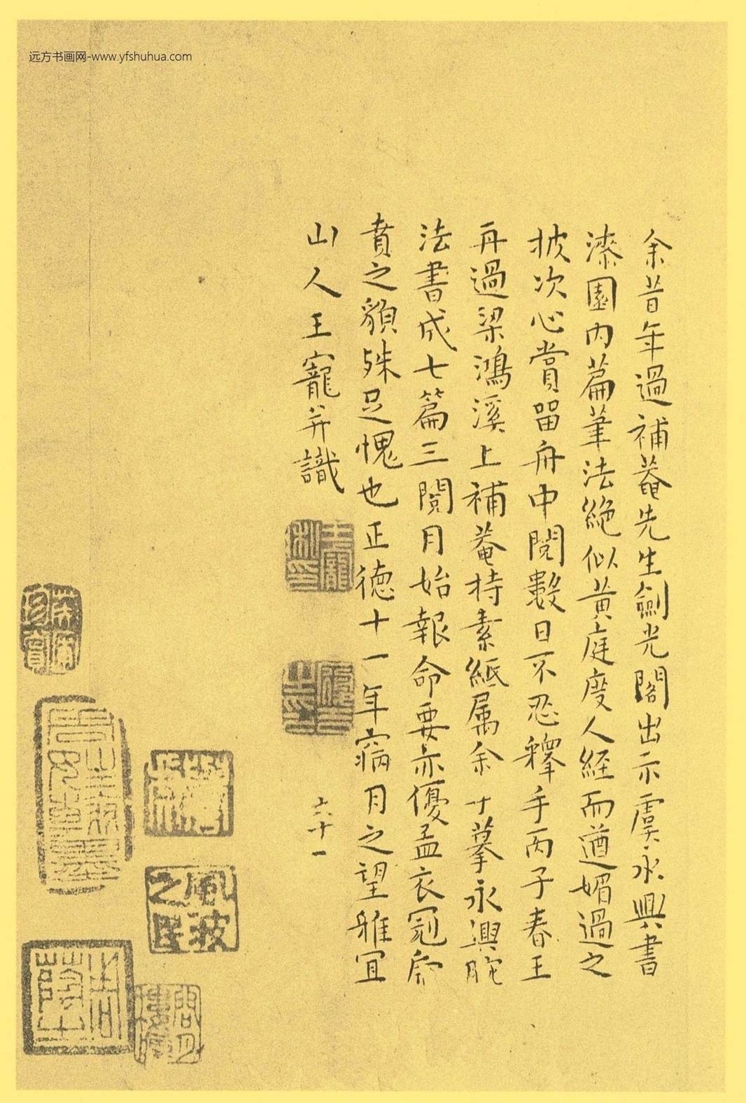 远方书画网-www.yfshuhua.com
余昔年過補菴先生劍光閣出示虞永興書
漆園内篇筆法絶似黃庭度人經而遒媚過之
披次心賞留舟中閱數日不忍釋手丙子春王
再過梁鴻溪上補菴持素紙屬余寸摹永興腕
法書成七篇三閱月始報命要亦優孟衣冠虎
賁之貌殊足愧也正德十一年寎月之望雅宜
山人王寵并識
六十一
王寵私印
風波之民